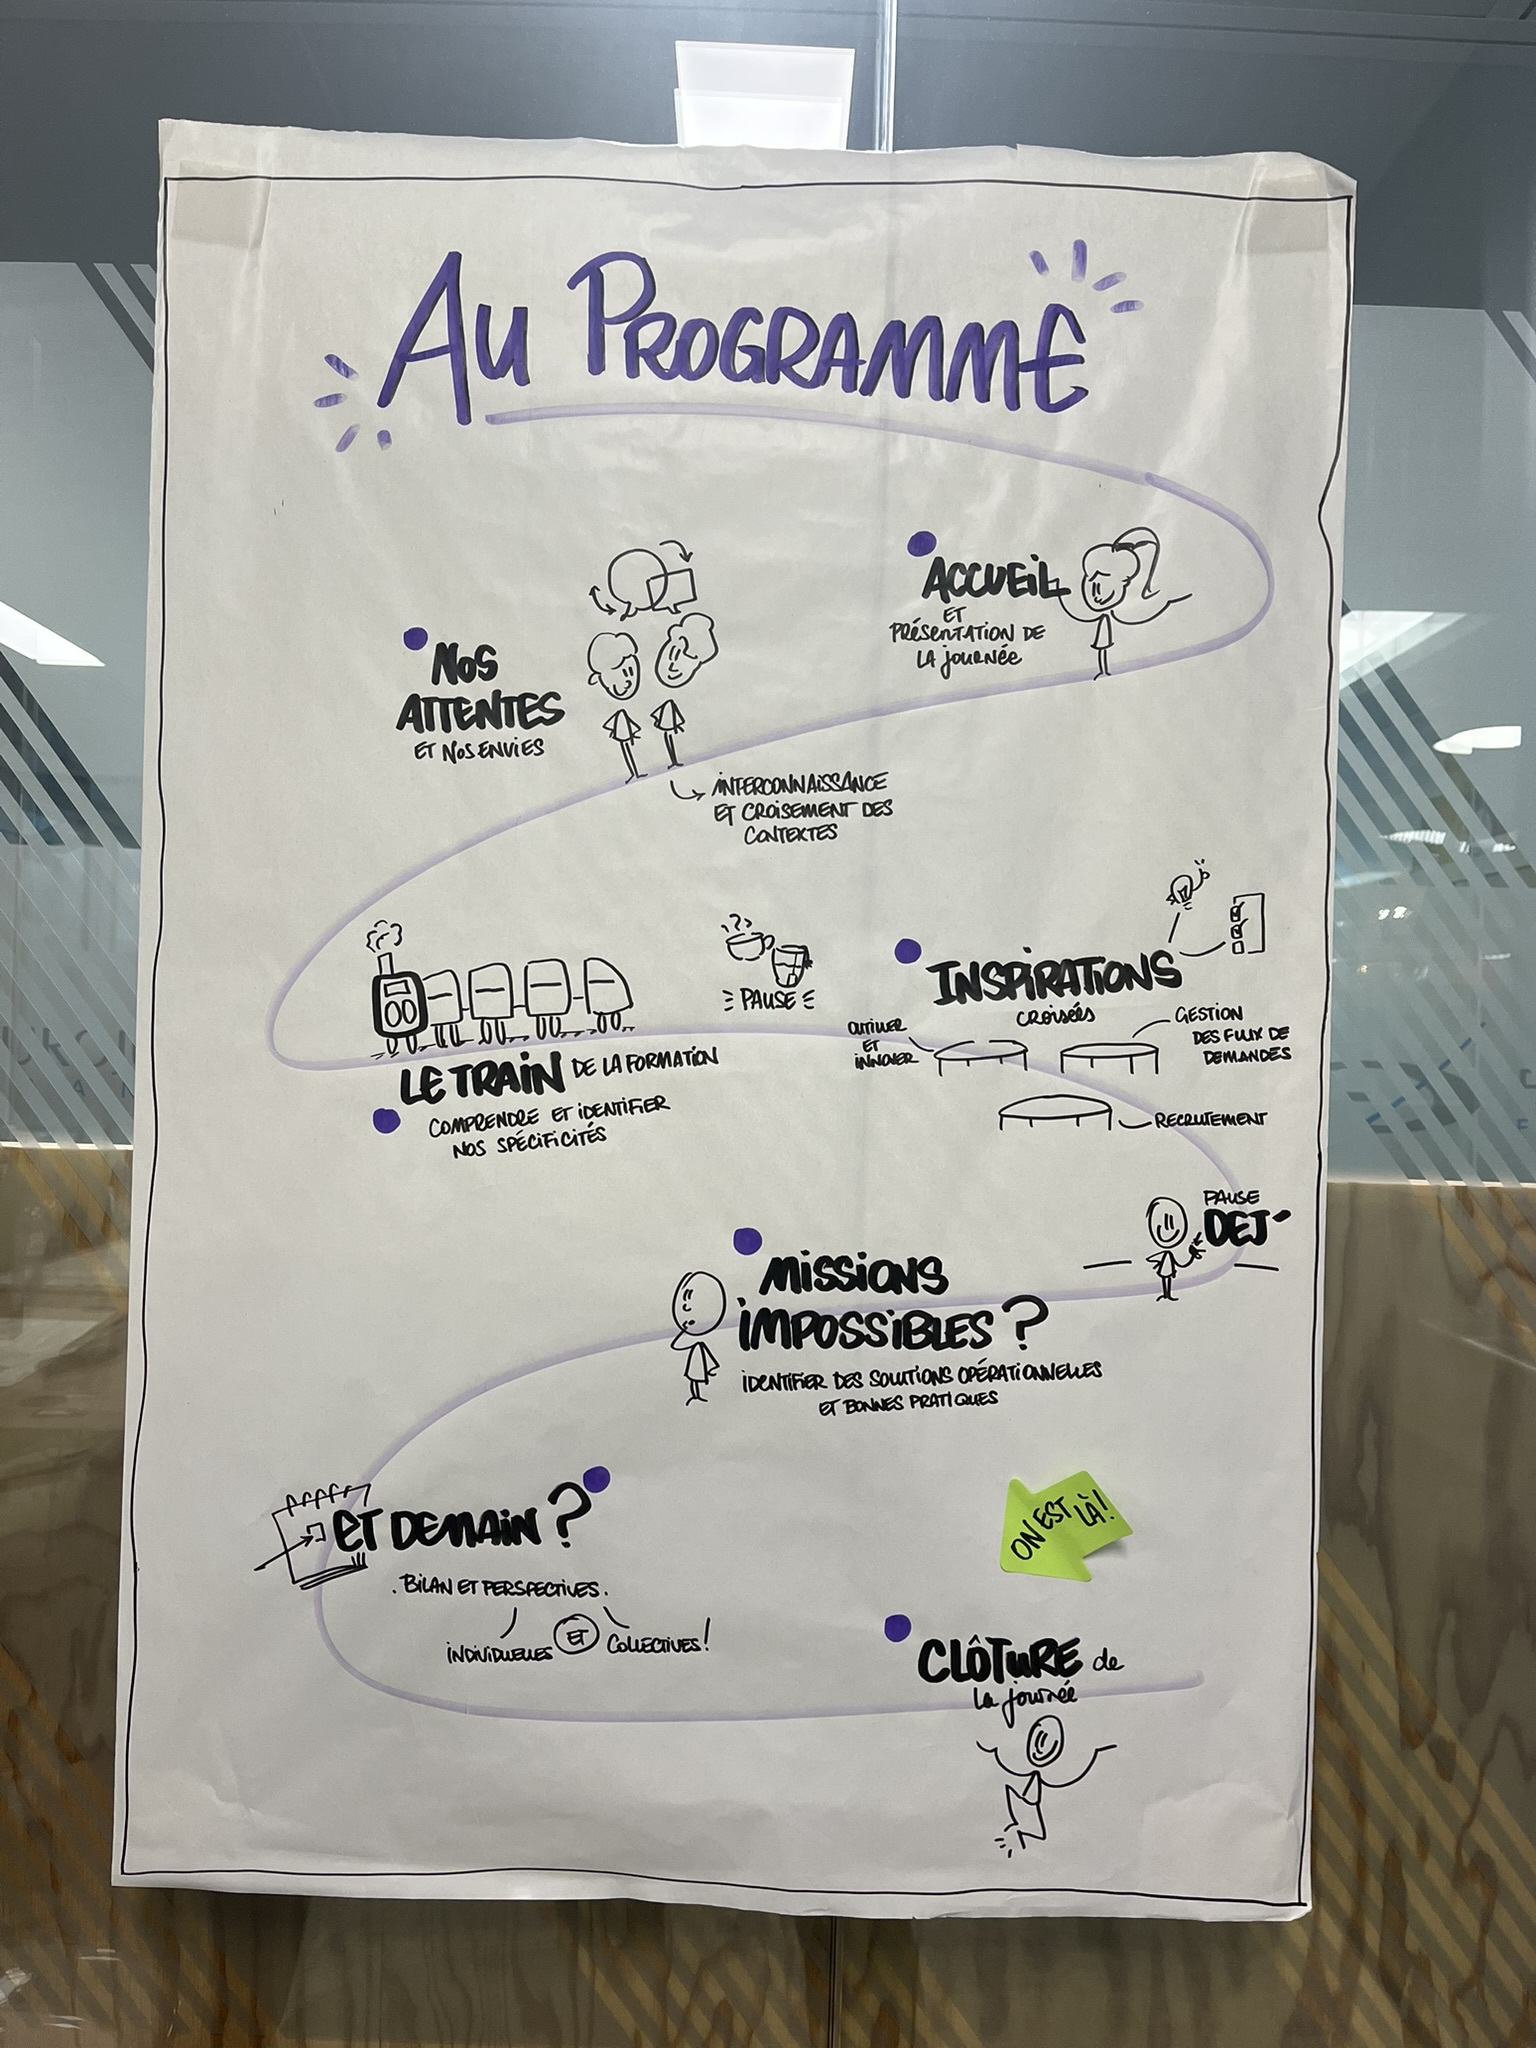 AU PROGRAMME
ACCUEIL
ET
PRÉSENTATION DE
LA JOURNÉE
NOS
ATTENTES
ET NOS ENVIES
INTERCONNAISSANCE
ET CROISEMENT DES
CONTEXTES
LE TRAIN DE LA FORMATION
COMPRENDRE ET IDENTIFIER
NOS SPÉCIFICITÉS
PAUSE
INSPIRATIONS
CROISÉES
OUTILLER
ET
INNOVER
GESTION
DES FLUX DE
DEMANDES
RECRUTEMENT
PAUSE
DEJ'
MISSIONS
IMPOSSIBLES ?
IDENTIFIER DES SOLUTIONS OPÉRATIONNELLES
ET BONNES PRATIQUES
ET DEMAIN ?
. BILAN ET PERSPECTIVES.
INDIVIDUELLES ET COLLECTIVES !
ON EST LÀ !
CLÔTURE de
la journée